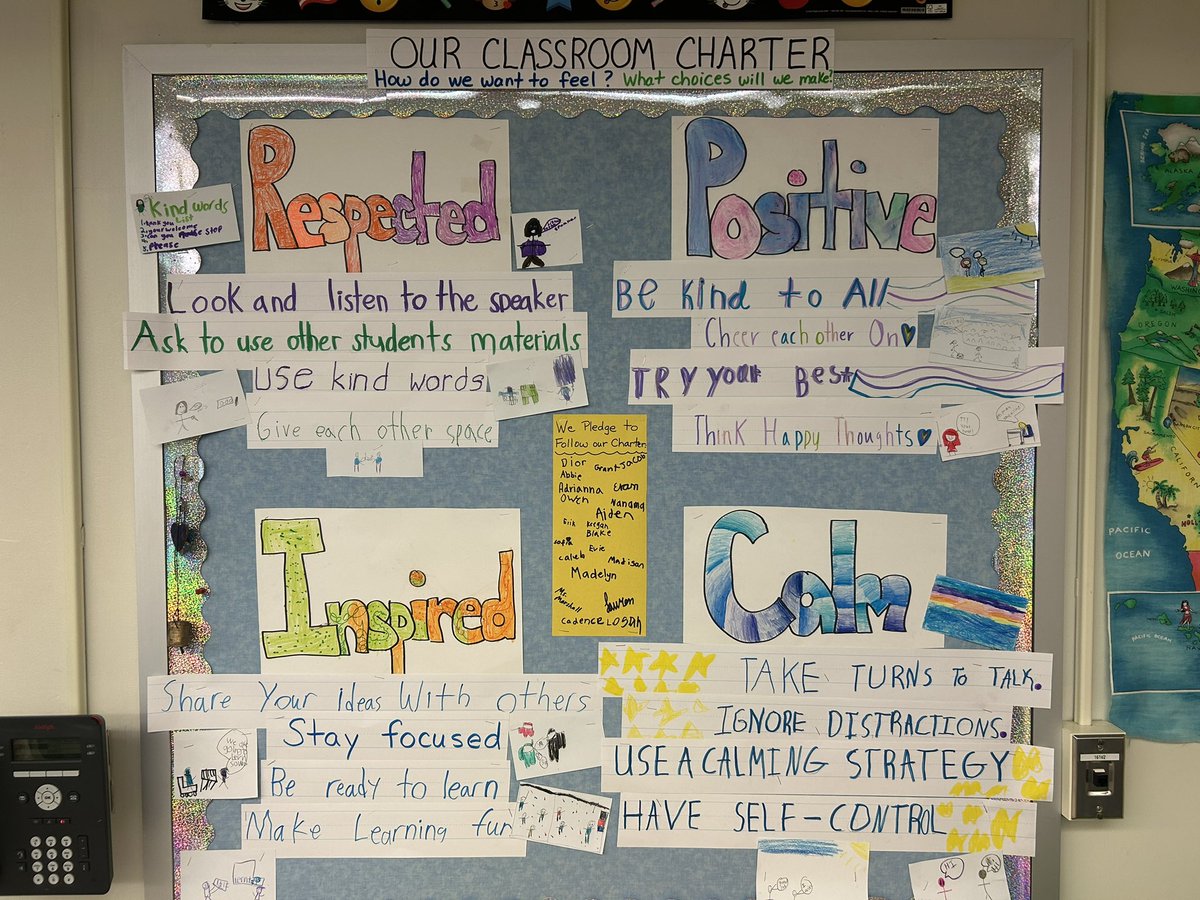 OUR CLASSROOM CHARTER
How do we want to feel? What choices will we make!
Respected
Kind words
List
1. thank you
2. your welcome
3. can you please stop
4.
5. Please
Look and listen to the speaker
Ask to use other students materials
USE kind words
Give each other space
Positive
BE Kind to All
Cheer each other On
TRY your Best
Think Happy Thoughts
We Pledge to
Follow our Charter
Dior Grant Jacob
Abbie
Adrianna Evan
Owen Nanama
Aiden
Erik Keegan
Blake
Sofia Evie
Caleb Madison
Madelyn
Mr. Marshall
Lauren
Cadence LOGAN
Inspired
Share Your ideas With others
Stay focused
Be ready to learn
Make Learning fun
Calm
TAKE TURNS TO TALK.
IGNORE DISTRACTIONS.
USE A CALMING STRATEGY
HAVE SELF-CONTROL
BERING SEA
ALASKA
WASHI
OREGON
CALIF
PACIFIC
OCEAN
PACIFIC
OCEAN
HA
AVAYA